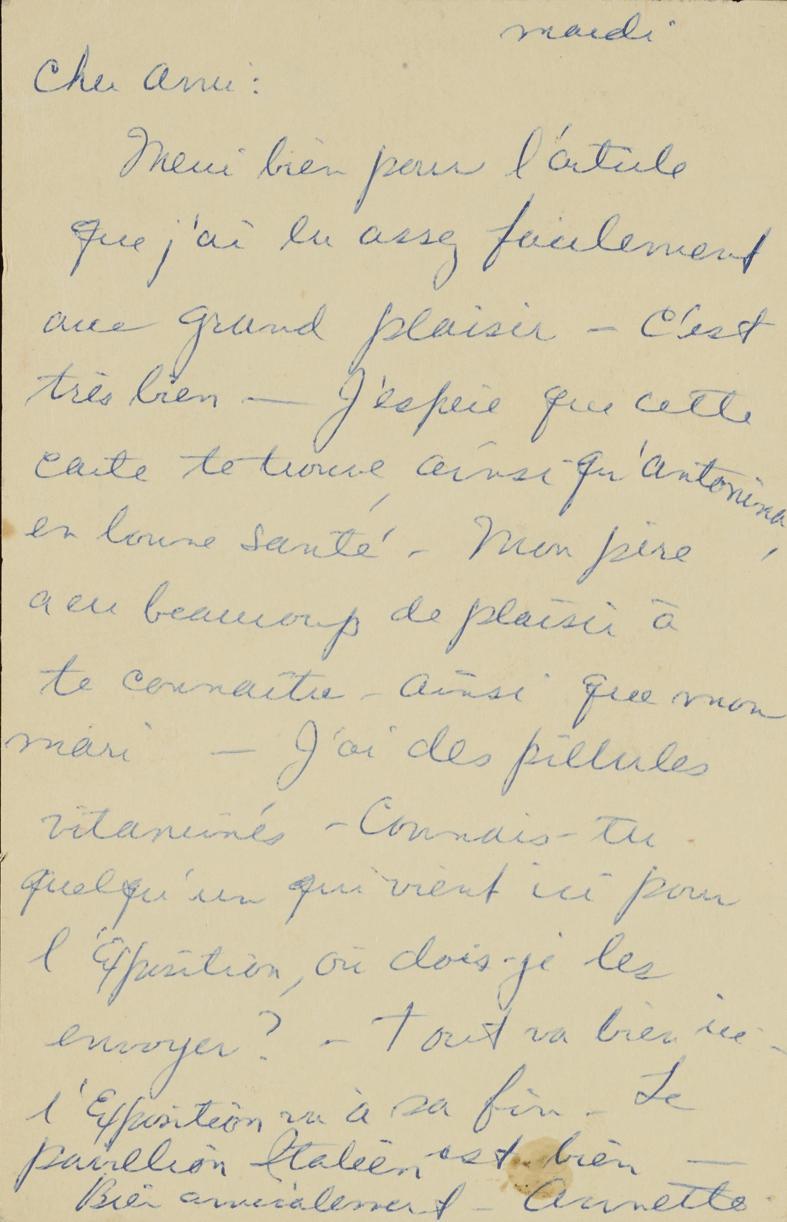 mardi
Cher Ami:
Merci bien pour l'article
que j'ai lu assez facilement
avec grand plaisir - C'est
très bien — J'espère que cette
carte te trouve, ainsi qu'Antonina,
en bonne santé - Mon père
a eu beaucoup de plaisir à
te connaître - ainsi que mon
mari — J'ai des pillules
vitaminés - Connais-tu
quelqu'un qui vient ici pour
l'Exposition, où dois-je les
envoyer? - Tout va bien ici -
l'Exposition va à sa fin - Le
pavillion Italien est bien —
Bien amicalement - Annette